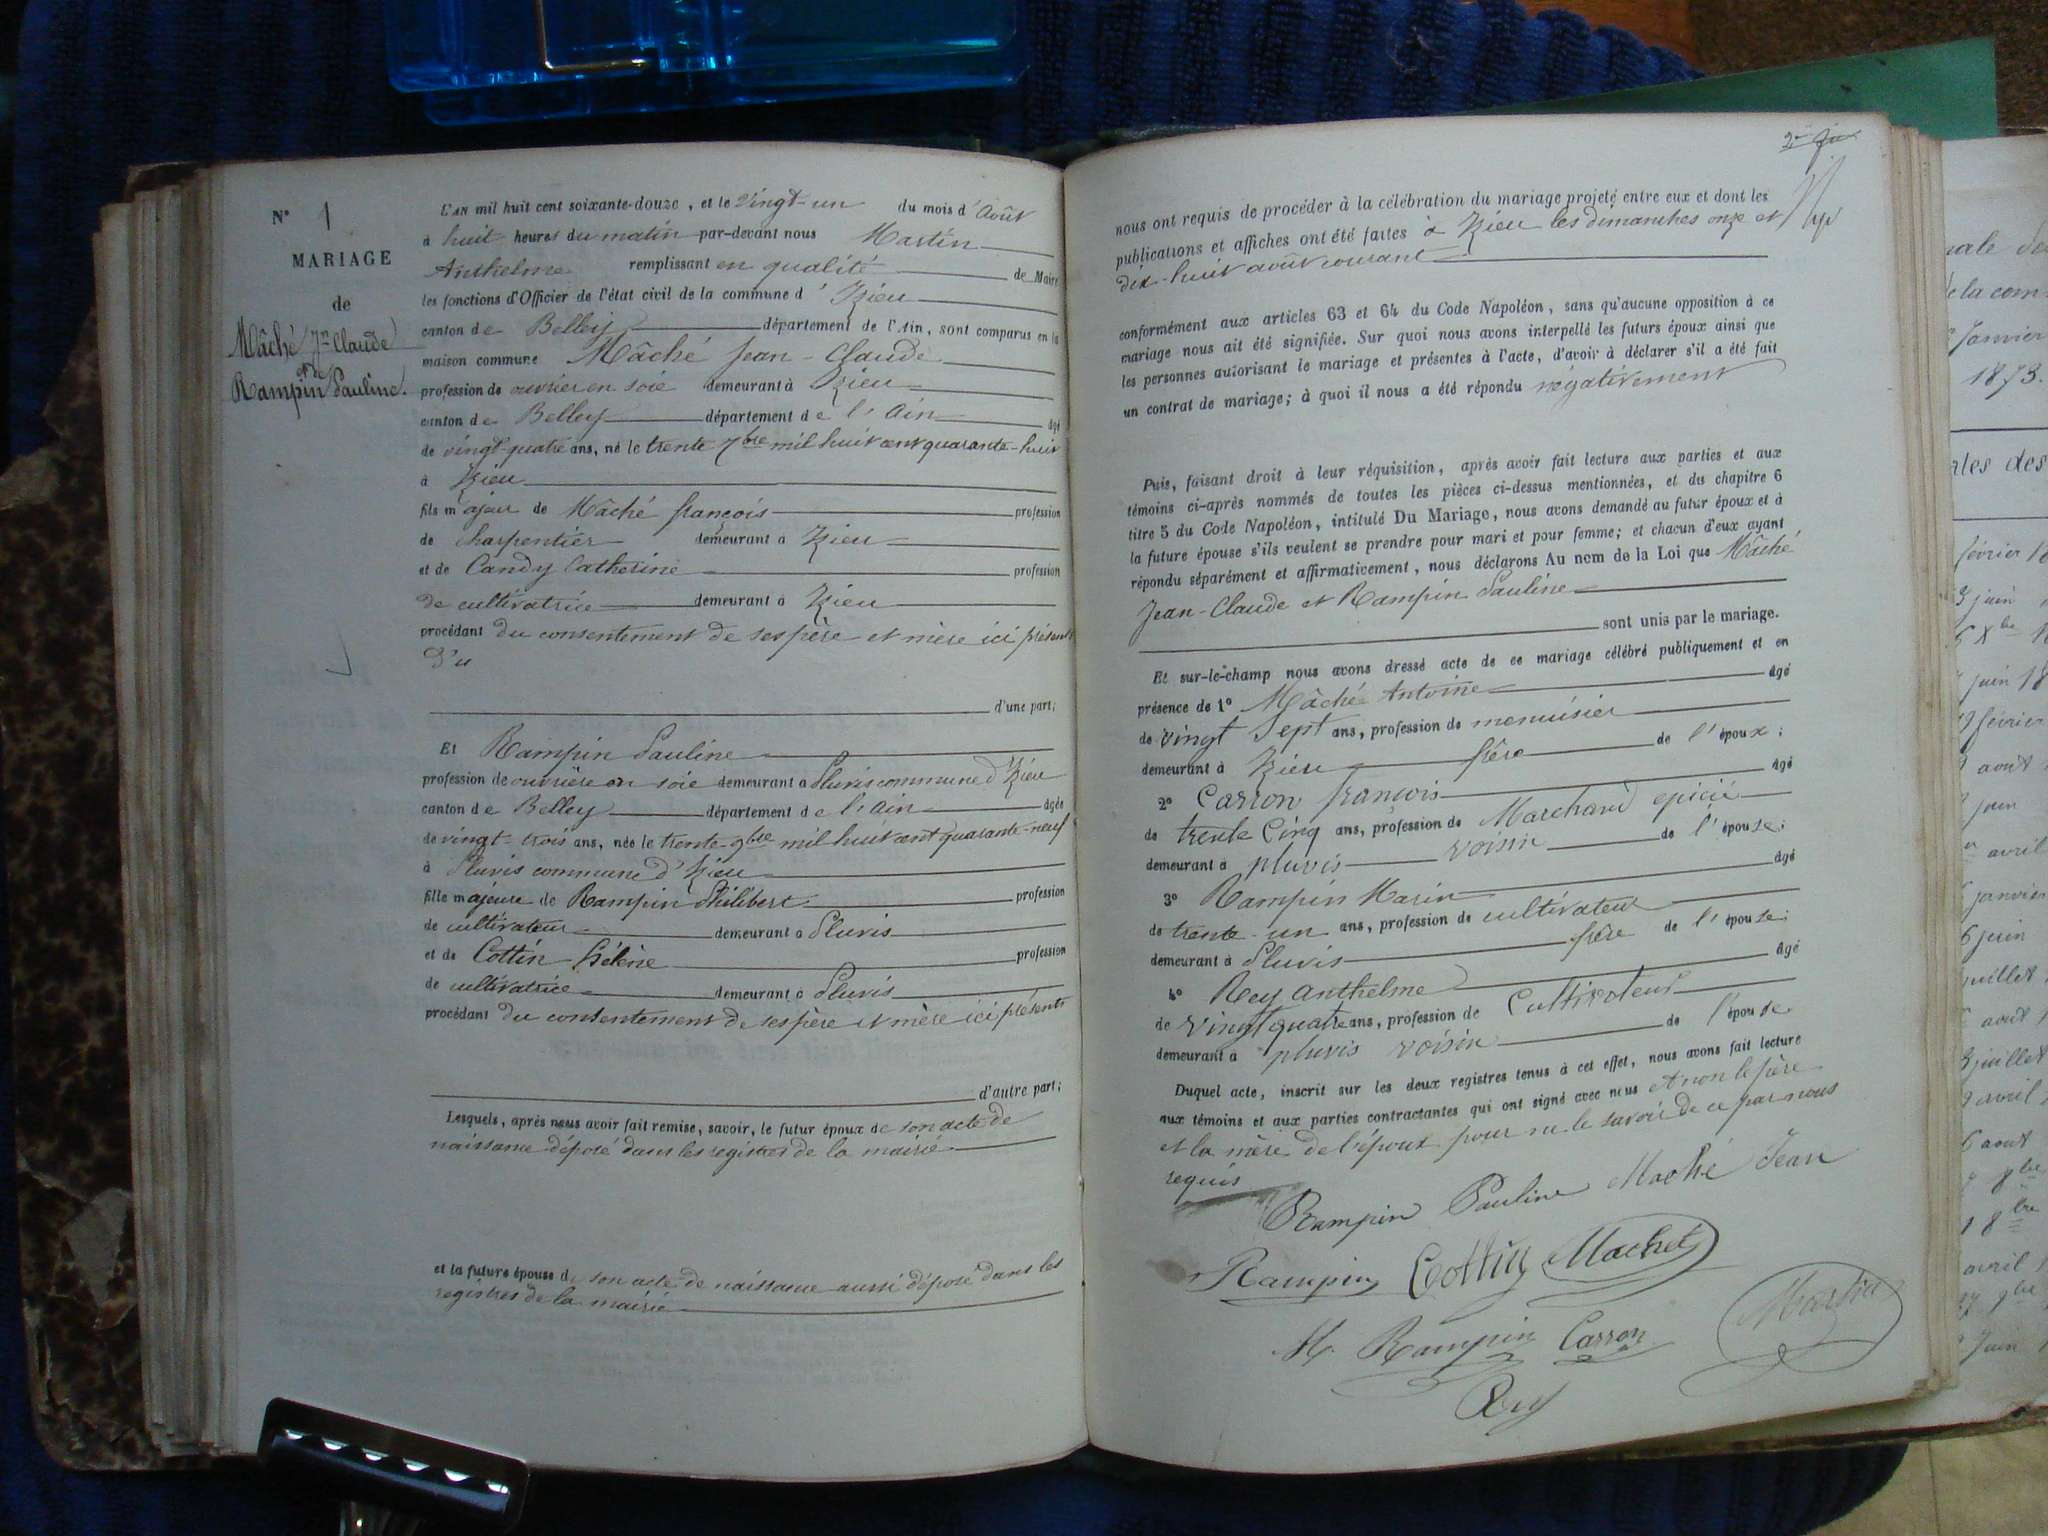 N° 1
MARIAGE
de
Mâché Jn Claude
et de
Rampin Pauline.
L'AN mil huit cent soixante-douze, et le vingt-un du mois d'août
à huit heures du matin par-devant nous Martin
Anthelme remplissant en qualité de Maire
les fonctions d'Officier de l'état civil de la commune d'Izieu
canton de Belley département de l'Ain, sont comparus en la
maison commune Mâché Jean-Claude
profession de ouvrier en soie demeurant à Izieu
canton de Belley département de l'Ain âgé
de vingt-quatre ans, né le trente 7bre mil huit cent quarante-huit
à Izieu
fils majeur de Mâché françois profession
de charpentier demeurant à Izieu
et de Candy Catherine profession
de cultivatrice demeurant à Izieu
procédant du consentement de ses père et mère ici présents
d'u
d'une part;
Et Rampin Pauline
profession de ouvrière en soie demeurant à Pluvis commune d'Izieu
canton de Belley département de l'Ain âgée
de vingt-trois ans, née le trente 9bre mil huit cent quarante-neuf
à Pluvis commune d'Izieu
fille majeure de Rampin Philibert profession
de cultivateur demeurant à Pluvis
et de Cottin Hélène profession
de cultivatrice demeurant à Pluvis
procédant du consentement de ses père et mère ici présents
d'autre part;
Lesquels, après nous avoir fait remise, savoir, le futur époux de son acte de
naissance déposé dans les registres de la mairie
et la future épouse de son acte de naissance aussi déposé dans les
registres de la mairie
nous ont requis de procéder à la célébration du mariage projeté entre eux et dont les
publications et affiches ont été faites à Izieu les dimanches onze et
dix-huit août courant
conformément aux articles 63 et 64 du Code Napoléon, sans qu'aucune opposition à ce
mariage nous ait été signifiée. Sur quoi nous avons interpellé les futurs époux ainsi que
les personnes autorisant le mariage et présentes à l'acte, d'avoir à déclarer s'il a été fait
un contrat de mariage; à quoi il nous a été répondu négativement
Puis, faisant droit à leur réquisition, après avoir fait lecture aux parties et aux
témoins ci-après nommés de toutes les pièces ci-dessus mentionnées, et du chapitre 6
titre 5 du Code Napoléon, intitulé Du Mariage, nous avons demandé au futur époux et à
la future épouse s'ils veulent se prendre pour mari et pour femme; et chacun d'eux ayant
répondu séparément et affirmativement, nous déclarons Au nom de la Loi que Mâché
Jean-Claude et Rampin Pauline
sont unis par le mariage.
Et sur-le-champ nous avons dressé acte de ce mariage célébré publiquement et en
présence de 1° Mâché Antoine âgé
de vingt sept ans, profession de menuisier
demeurant à Izieu frère de l'époux;
2° Carron françois âgé
de trente Cinq ans, profession de Marchand epicié
demeurant à pluvis voisin de l'épouse;
3° Rampin Marin âgé
de trente-un ans, profession de cultivateur
demeurant à Pluvis frère de l'épouse;
4° Rey anthelme âgé
de vingt quatre ans, profession de Cultivateur
demeurant à pluvis voisin de l'épouse
Duquel acte, inscrit sur les deux registres tenus à cet effet, nous avons fait lecture
aux témoins et aux parties contractantes qui ont signé avec nous et non le père
et la mère de l'époux pour ne le savoir de ce par nous
requis
Rampin Pauline Maché Jean
Rampin Cottin Machet
M. Rampin Carron Martin
Rey
Janvier
1873.
février
3 juin
juin 18
février
août
juin
avril
janvier
6 juin
juillet
août
juillet
avril
6 août
avril
Juin